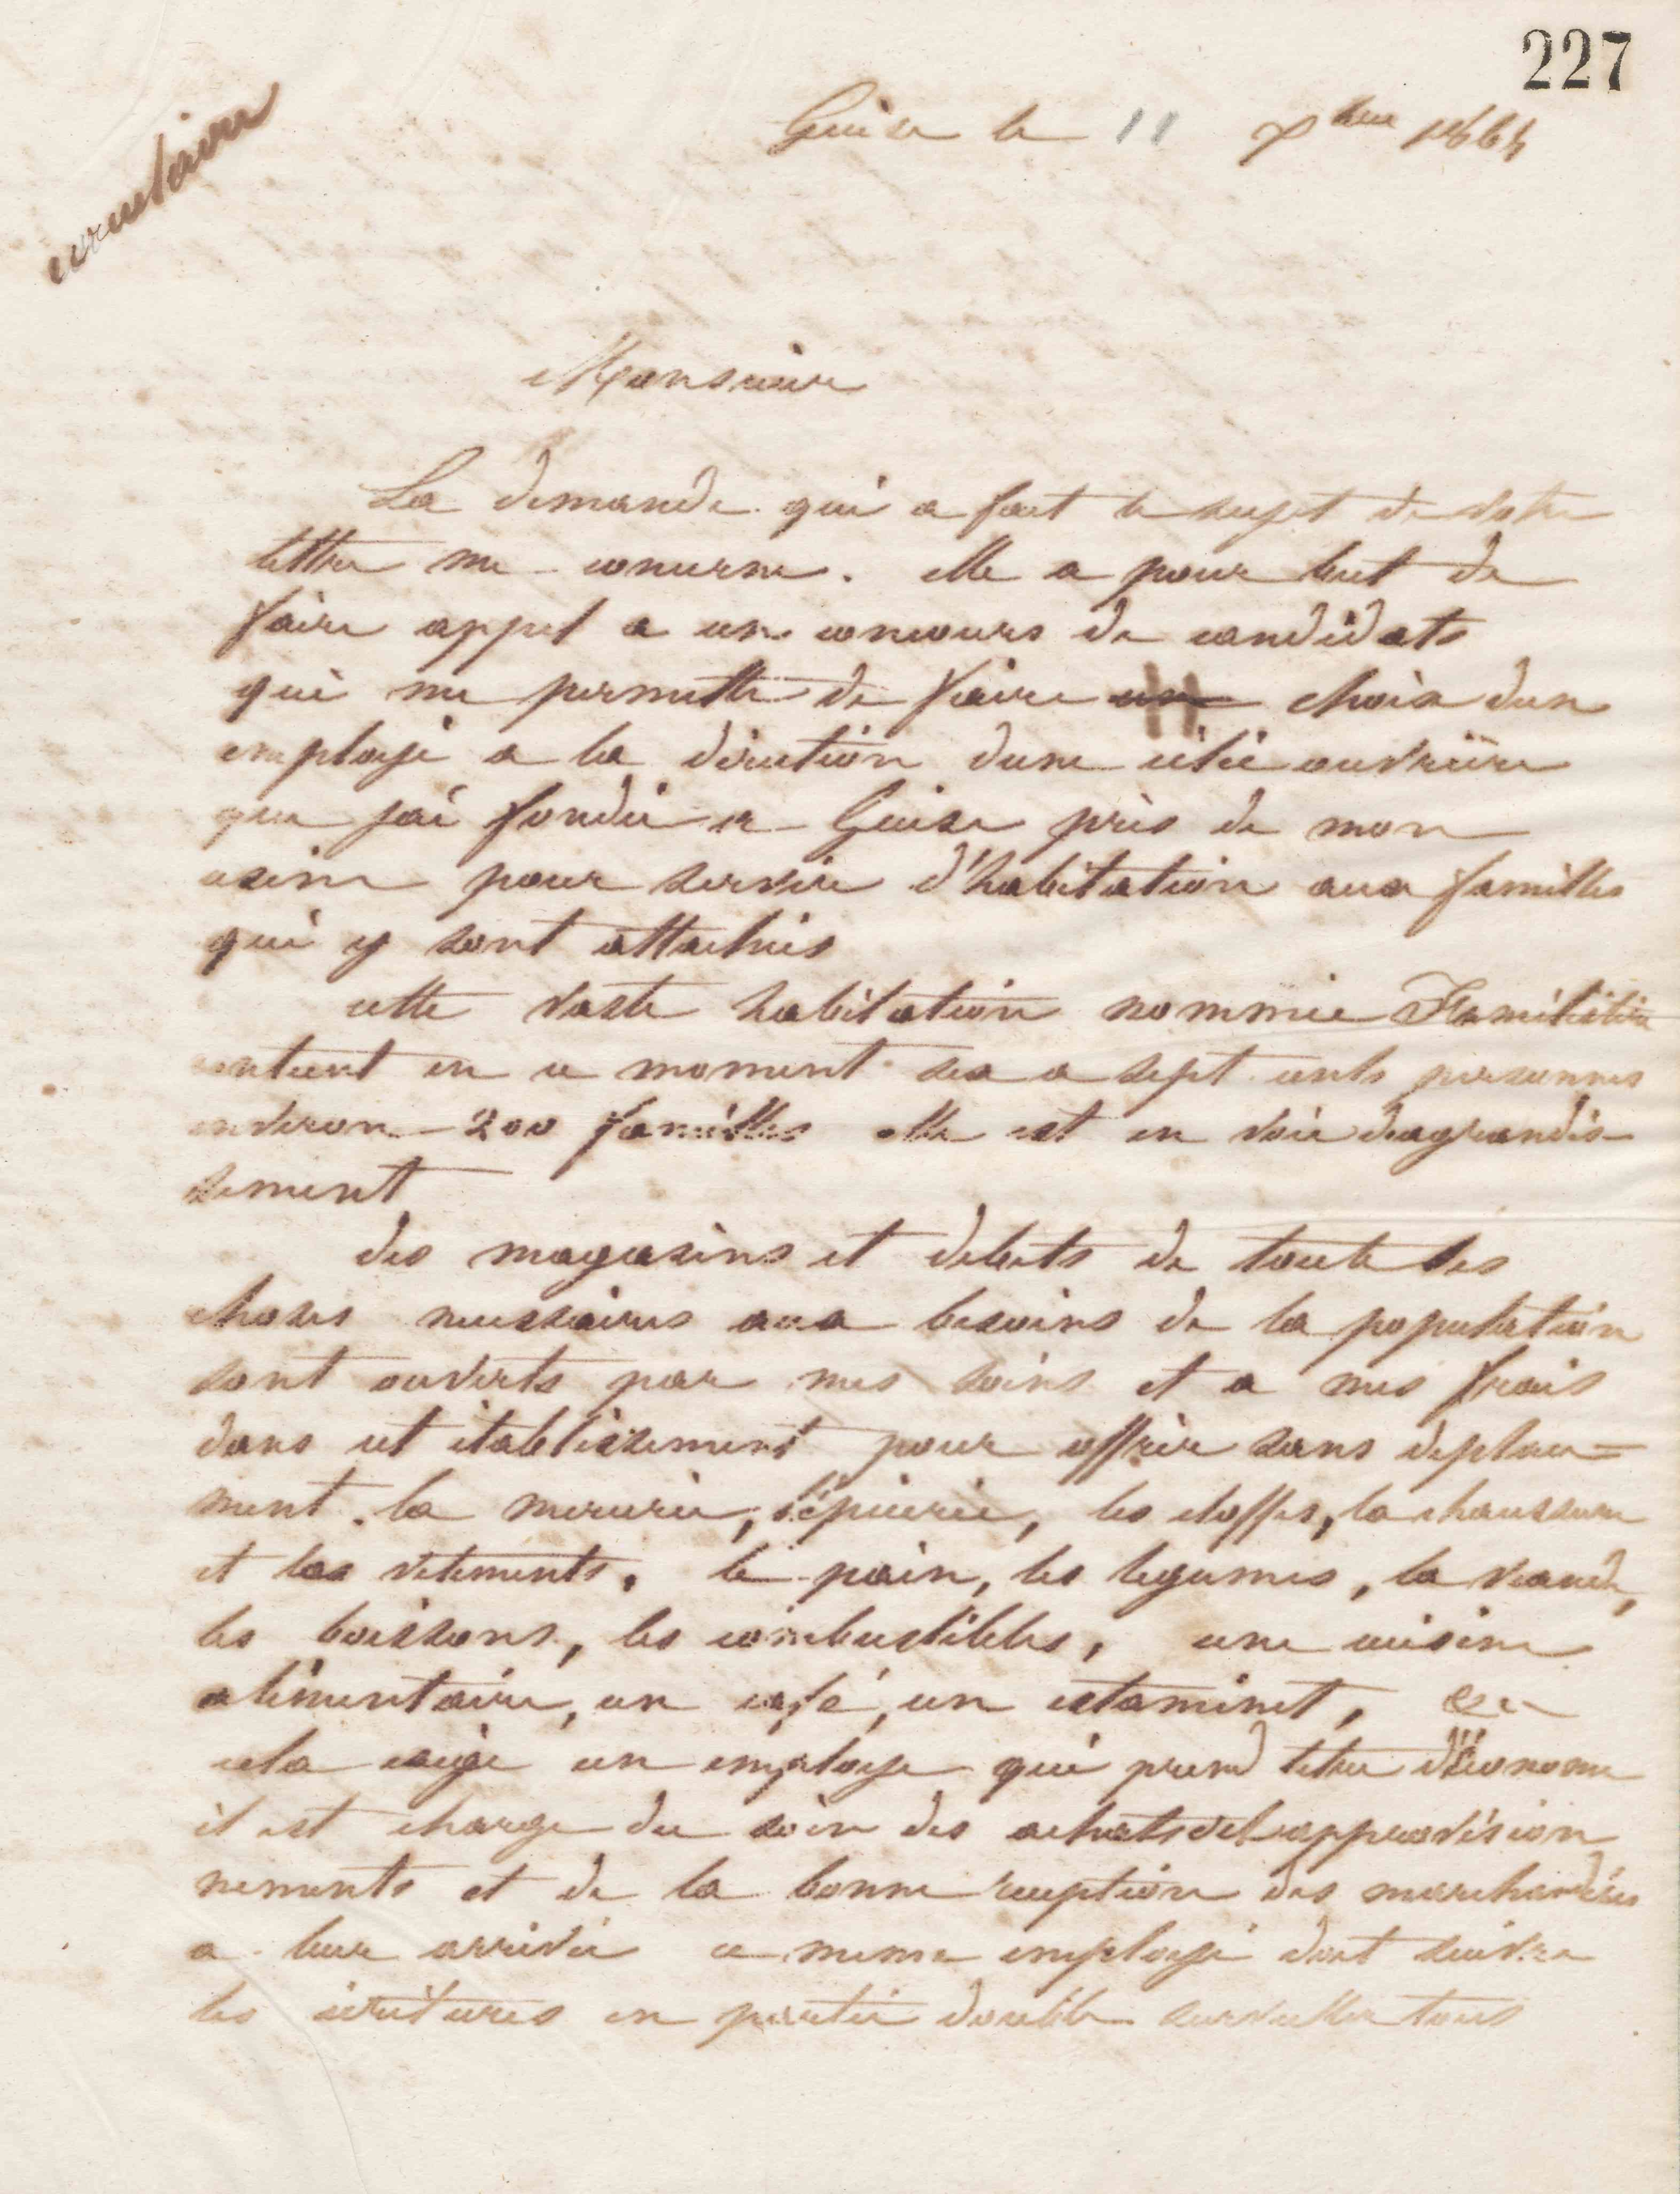 227
Guise le 11 Xbre 1864
circulaire
Monsieur
La demande qui a fait le sujet de votre
lettre me concerne. elle a pour but de
faire appel a un concours de candidats
qui me permette de faire un choix dun
employé a la direction dune cité ouvrière
que jai fondée a Guise près de mon
usine pour servir d'habitation aux familles
qui y sont attachées
cette vaste habitation nommée Familistère
contient en ce moment six a sept cents personnes
environ 200 familles elle est en voie dagrandis-
sement
des magasins et debits de toute les
choses necessaires aux besoins de la population
sont ouverts par mes soins et a mes frais
dans cet établissement pour offrir sans deplace=
ment. la mercerie, l'épicerie, les etoffes, la chaussure
et les vetements. le pain, les legumes, la viande,
les boissons, les combustibles, une cuisine
alimentaire, un café, un estaminet, &c
cela exige un employe qui prend titre d'économe
il est charge du soin des achats et approvision
nements et de la bonne reception des marchandises
a leur arrivée ce meme employé doit suivre
les écritures en partie double surveiller tous